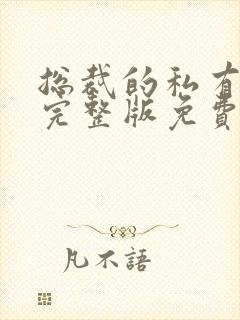 总裁的私有
完整版免費
凡不語